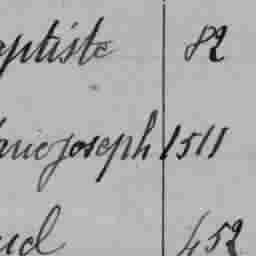 aptiste 82
ariejoseph 1511
ud 452